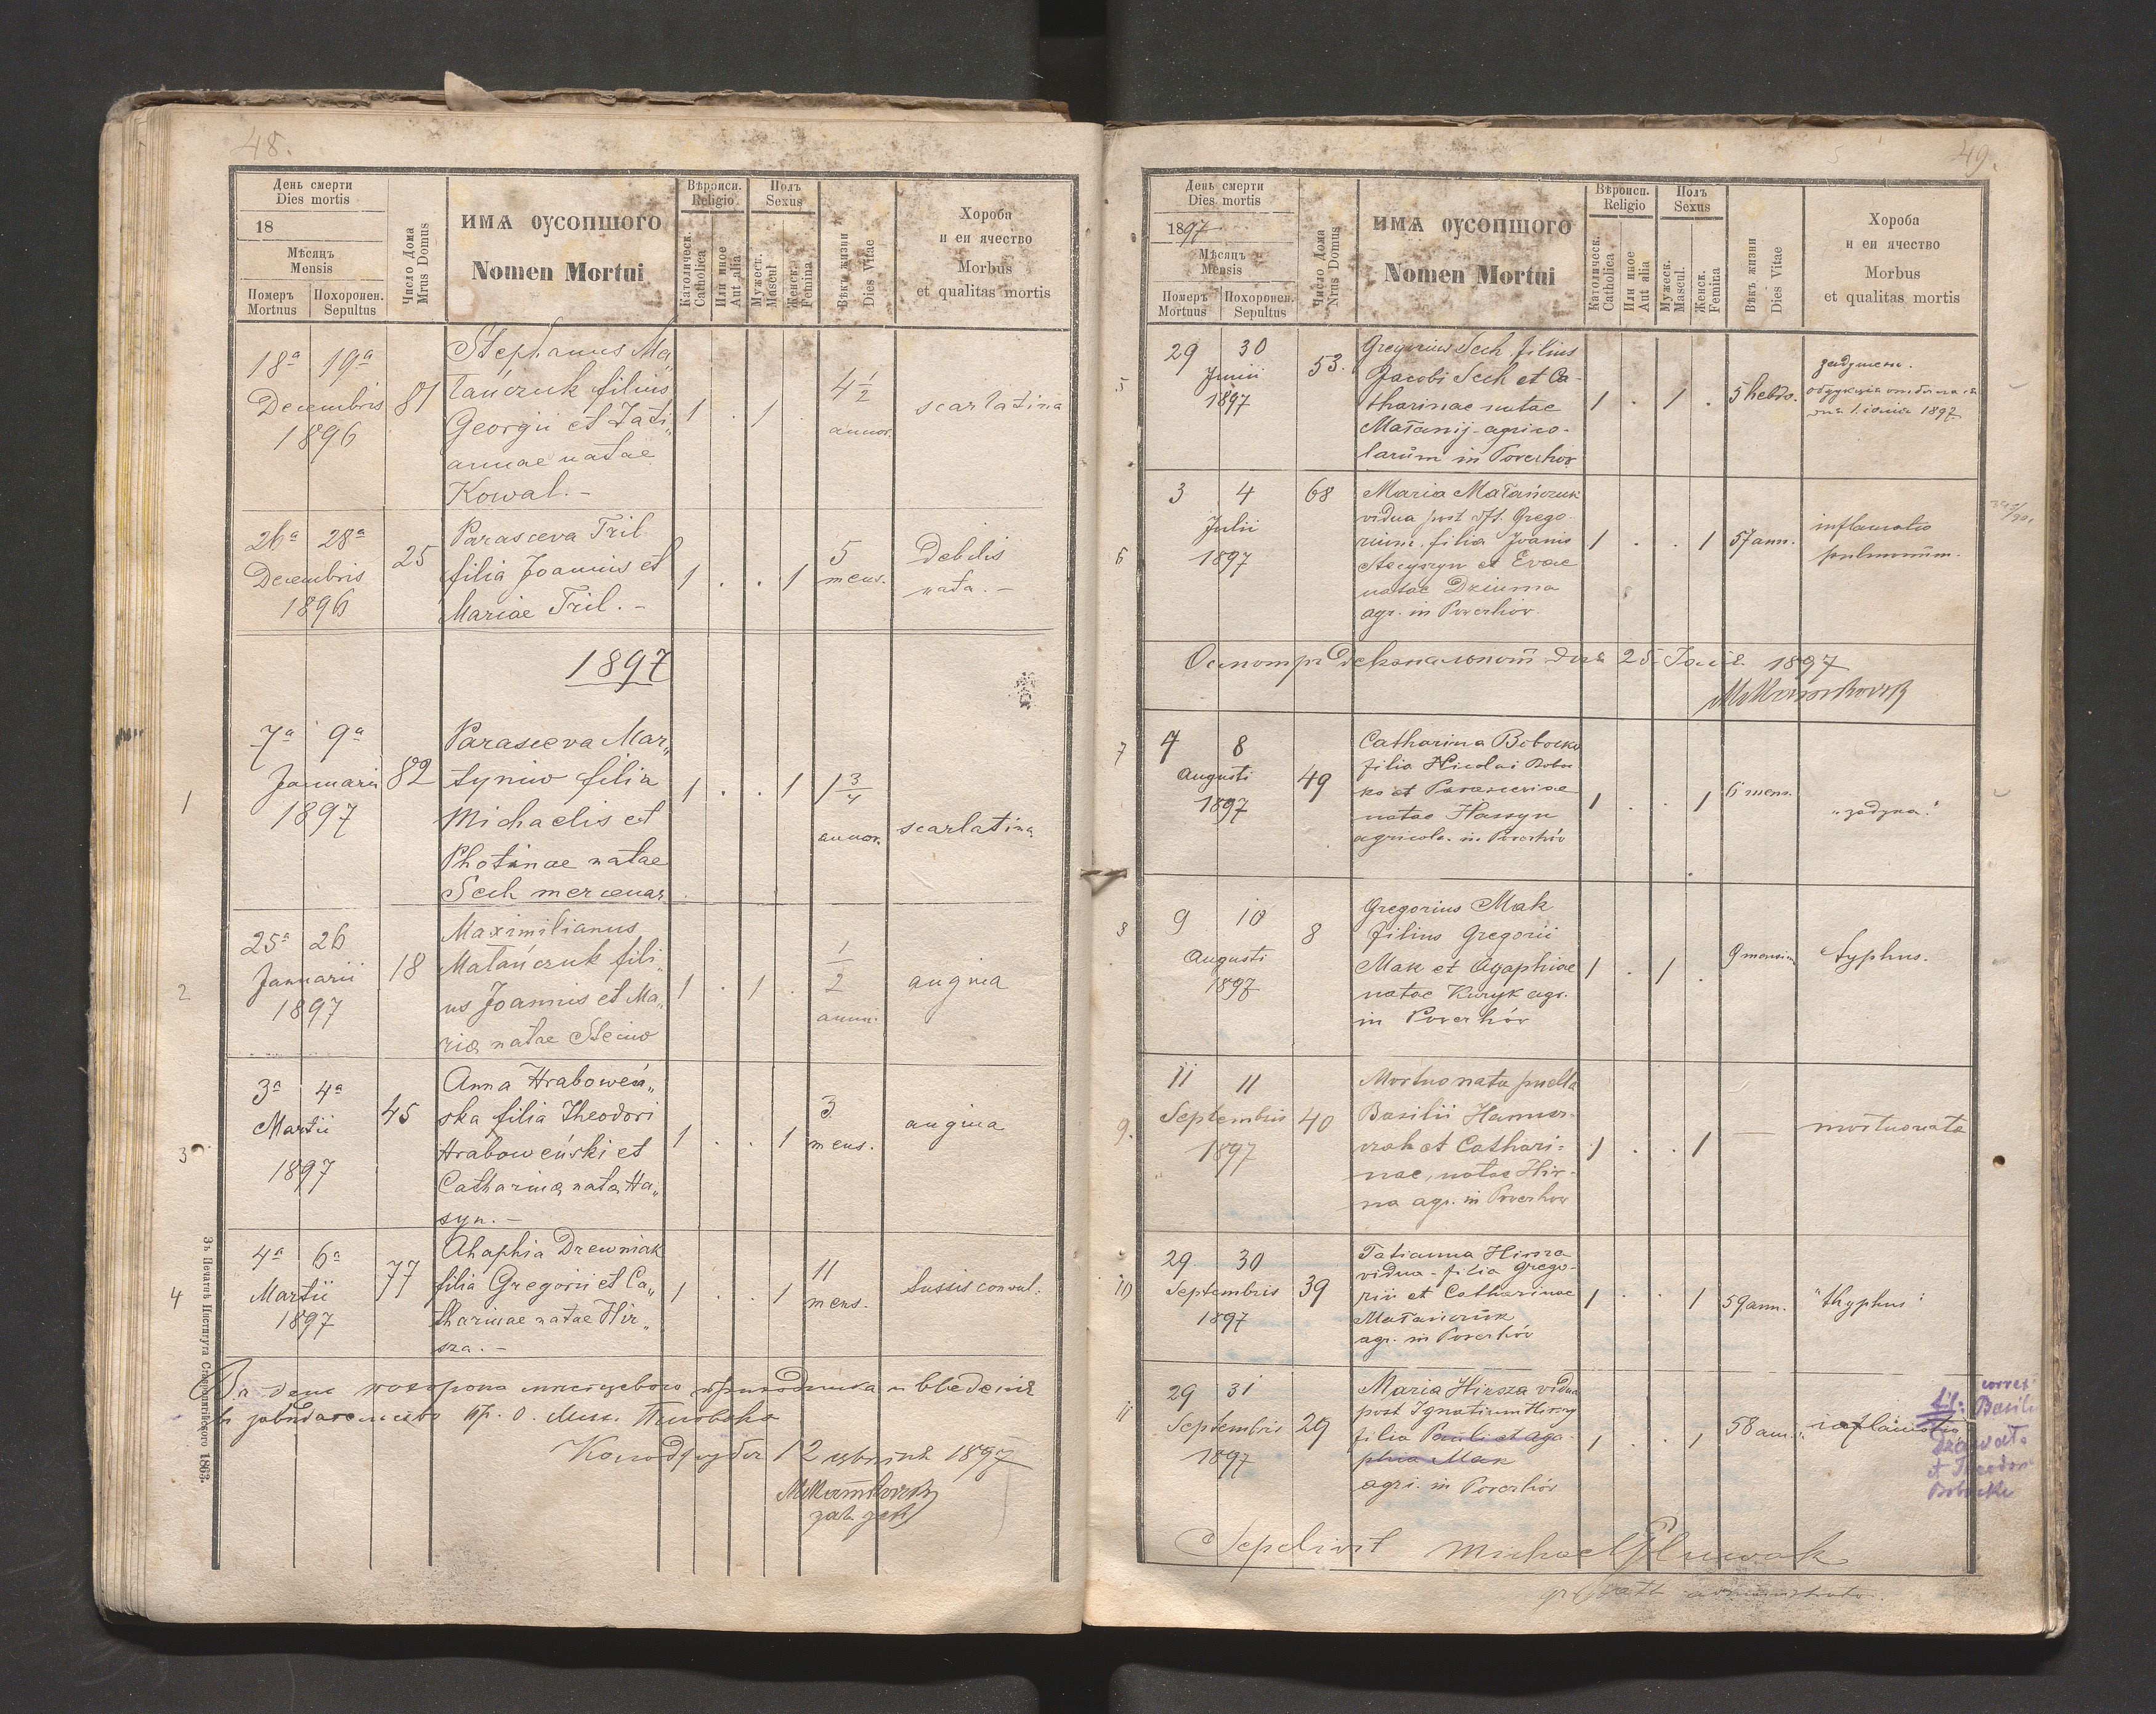 48.
День смерти
Dies mortis
18
Мѣсяцъ
Mensis
Померъ
Mortuus
Похоронен.
Sepultus
Число Дома
Mrus Domus
имѧ оусопшого
Nomen Mortui
Вѣроисп.
Religio
Католическ.
Catholica
Или иное
Aut alia
Полъ
Sexus
Мужеск.
Mascul
Женск.
Femina
Вѣкъ жизни
Dies Vitae
Хороба
и еи ячество
Morbus
et qualitas mortis
18ª 19ª
Decembris
1896
81
Stephanus Ma„
tańczuk filius
Georgii et Tati„
annae natae
Kowal. –
1 . 1 .
4 1/2
annor.
scarlatina
26ª 28ª
Decembris
1896
25
Parasceva Tril
filia Joannis et
Mariae Tril. –
1 . . 1
5
mens.
Debilis
nata. –
1897
1
7ª 9ª
Januarii
1897
82
Parasceva Mar„
tyniw filia
Michaelis et
Photinae natae
Sech mercenar.
1 . . 1
1 3/4
annor.
scarlatina
2
25ª 26
Januarii
1897
18
Maximilianus
Matańczuk fili„
us Joannis et Ma„
riae natae Steciw
1 . 1 .
1/2
anni.
angina
3
3ª 4ª
Martii
1897
45
Anna Hraboweń„
ska filia Theodori
Hraboweński et
Catharinae natae Ha„
syn. –
1 . . 1
3
mens.
angina
4
4ª 6ª
Martii
1897
77
Ahaphia Drewniak
filia Gregorii et Ca„
tharinae natae Hir„
sza. –
1 . . 1
11
mens.
tussis convul.
Въ день похорона мисцевого приходника и введенія
въ завѣдательство пр. о. Мих.
12 цвѣтня 1897
Зъ Печатнѣ Института Ставропигійского 1863.
49.
День смерти
Dies mortis
1897
Мѣсяцъ
Mensis
Померъ
Mortuus
Похоронен.
Sepultus
Число Дома
Nrus Domus
имѧ оусопшого
Nomen Mortui
Вѣроисп.
Religio
Католическ.
Catholica
Или иное
Aut alia
Полъ
Sexus
Мужеск.
Mascul.
Женск.
Femina
Вѣкъ жизни
Dies Vitae
Хороба
и еи ячество
Morbus
et qualitas mortis
5
29 30
Junii
1897
53.
Gregorius Sech filius
Jacobi Sech et Ca-
tharinae natae
Matanij agrico-
larum in Powerhów
1 . 1 .
5 hebdo.
1897
6
3 4
Julii
1897
68
Maria Matańczuk
vidua post dft. Grego-
rium, filia Joanis
Stecyszyn et Evae
natae Dziuma
agr. in Powerhów
1 . . 1
57 ann.
inflamatio
pulmonum.
25 1897
7
7 8
Augusti
1897
49
Catharina Bobecko
filia Nicolai Bobec
ko et Parasceviae
natae Hassyn
agricola. in Powerhów
1 . . 1
6 mens.
"задуха".
8
9 10
Augusti
1897
8
Gregorius Mak
filius Gregorii
Mak et Agaphiae
natae Kuryk agr.
in Powerhów
1 . 1 .
9 mensium
typhus.
9.
11 11
Septembris
1897
40
Mortuo nata puella
Basilii
et Cathari-
nae, natae Hir-
na agr. in Powerhów
1 . . 1
—
mortuo nata
10
29 30
Septembris
1897
39
Tatianna Hirsza
vidua - filia Grego-
rii et Catharinae
Matańczuk
agr. in Powerhów
1 . . 1
59 ann.
"thyphus".
11
29 31
Septembris
1897
29
Maria Hirsza vidua
post Ignatium Hirszy
filia Pauli et Aga-
phia Mak
agri. in Powerhów
1 . . 1
58 ann.
inflamatio
corret
fil: Basili
et Theodor
Bobecko
Sepelivit Michael
gr. catt administrator.